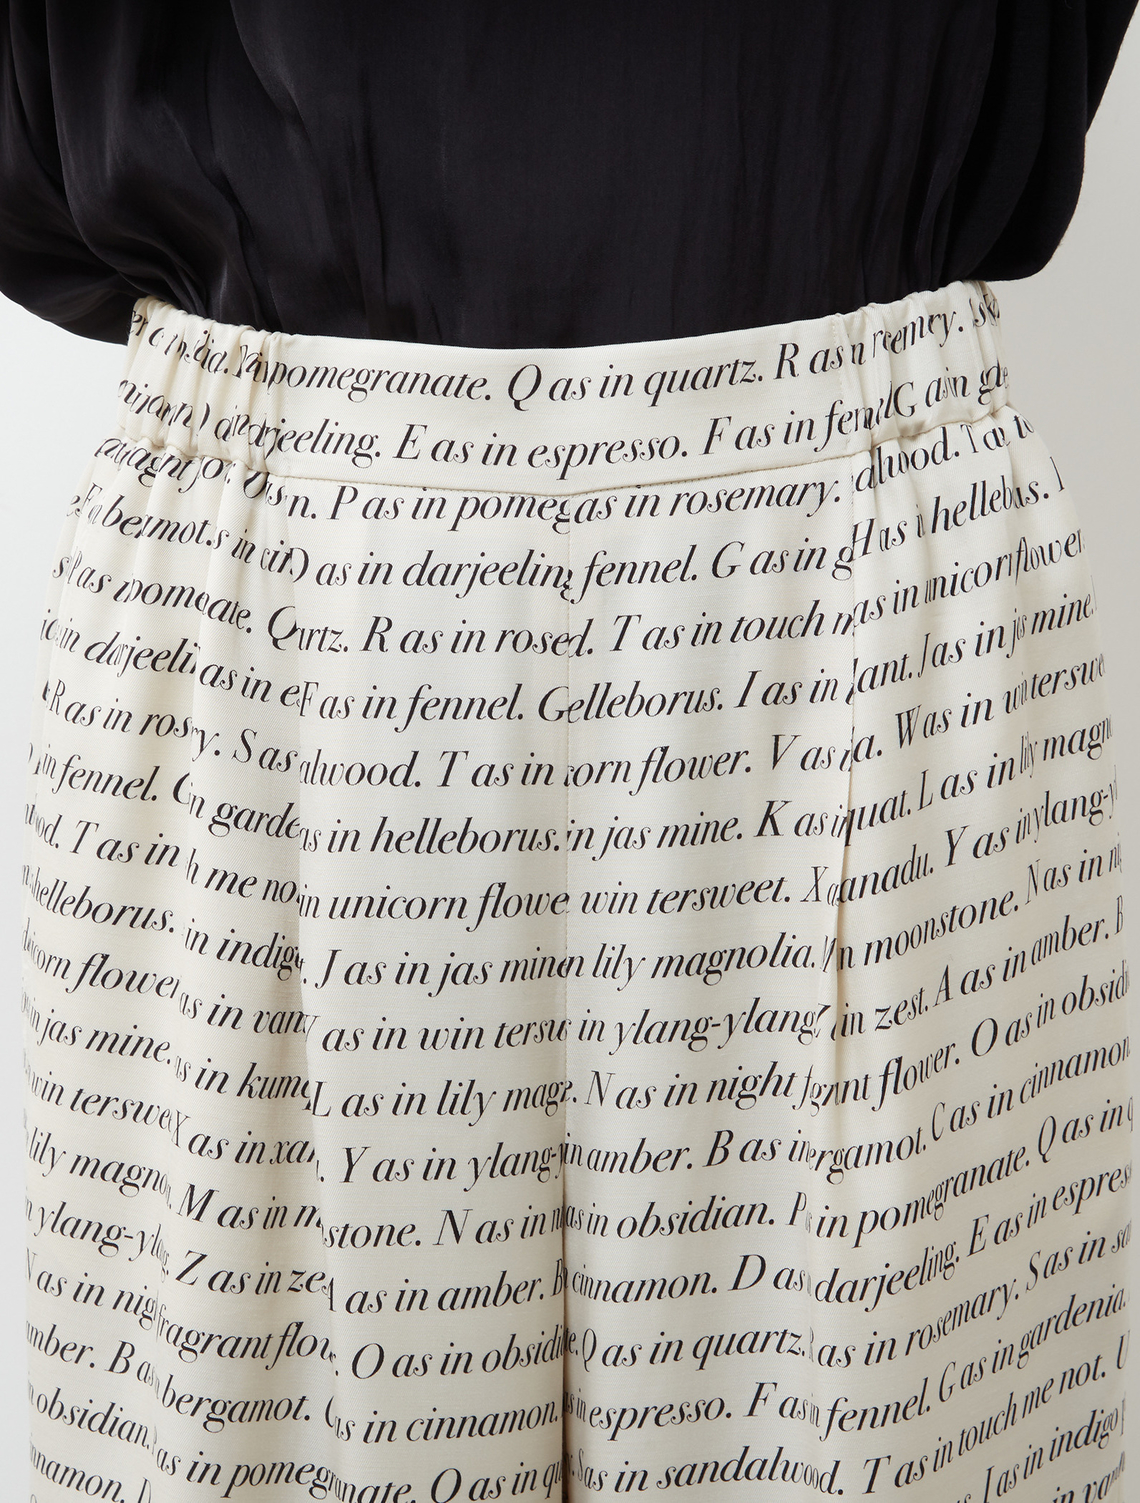 pomegranate. Q as in quartz. R as rosemary.
darjeeling. E as in espresso. F as in fennel G as in
n. P as in pome as in rosemary.
bergamot. as in darjeelin fennel. G as in H as hellebus.
as Q rtz. R as in rose d. T as in touch as in unicorn flower
in darjeeli as in e F as in fennel. G elleborus. I as in ant. J as in jas mine.
R as in ros y. S as alwood. T as in corn flower. V as a. W as in winterswe
in fennel. G n garde as in helleborus. in jas mine. K as quat. L as in lily magn
od. T as in h me no in unicorn flowe win tersweet. X anadu. Y as in ylang-y
helleborus. in indigo . J as in jas mine n lily magnolia. n moonstone. N as in
corn flower as in van as in win tersw in ylang-ylang in zest. A as in amber. B
in jas mine. s in kumq L as in lily mag . N as in night f grant flower. O as in obsidi
win terswe X as in xa . Y as in ylang- in amber. B as in ergamot. C as in cinnamon.
lily magno . M as in m stone. N as in n as in obsidian. P in pomegranate. Q as in q
n ylang-yl . Z as in zes A as in amber. B cinnamon. D as darjeeling. E as in espres
N as in nig fragrant flow . O as in obsidi e. Q as in quartz. as in rosemary. S as in sa
mber. B as bergamot. C as in cinnamon. in espresso. F as in fennel. G as in gardenia.
obsidian. as in pomegranate. Q as in qu S as in sandalwood. T as in touch me not. U
nnamon. D J as in indigo
in van